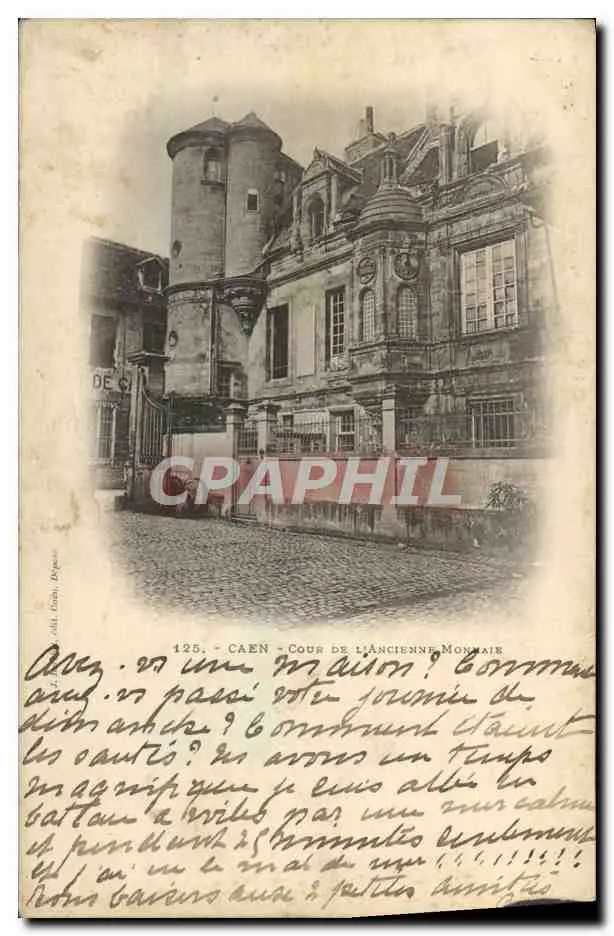 DE C
CPARCHPHIL
125. - CAEN - COUR DE L'ANCIENNE MONNAIE
édit. Caën. Déposé
Avez-vs une maison? Comment
avez-vs passé votre journée de
dimanche? Comment étaient
les santés? Ns avons un temps
magnifique je suis allé en
bateau à voiles par une mer calme
et pendant 25 minutes seulement
et j'ai eu le mal de mer !!!!!!!!!
bons baisers aux 2 petites amitiés